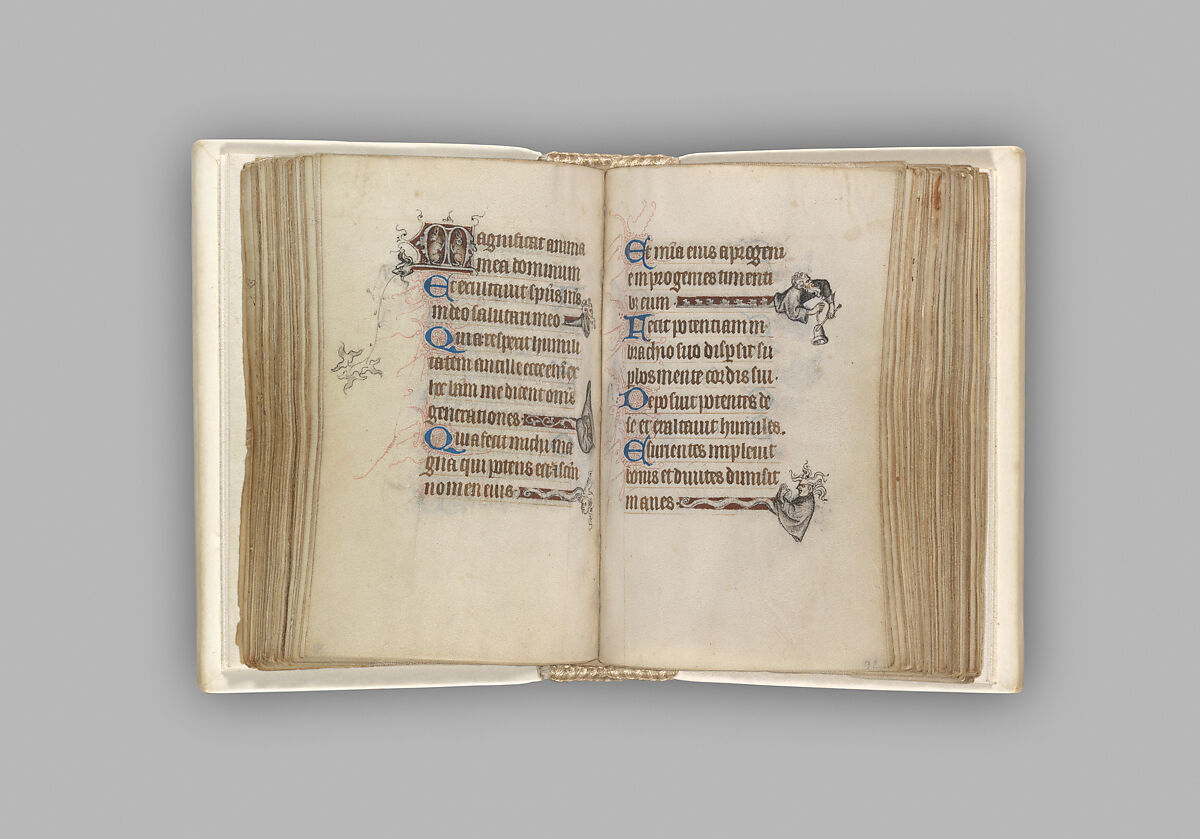 Magnificat anima
mea dominum
Et exultavit sp̄us m̄s
in deo salutari meo
Quia respexit humili
tatem ancille ecce en̄i ex
hoc beatam me dicent om̄s
generationes
Quia fecit michi ma
gna qui potens est & sc̄m
nomen eius
Et mīa eius a progeni
em progenies timenti
b; eum
Fecit potentiam in
brachio suo dispsit su
pbos mente cordis sui.
Deposuit potentes de
se et exaltavit humiles.
Esurientes implevit
bonis et divites dimisit
inanes